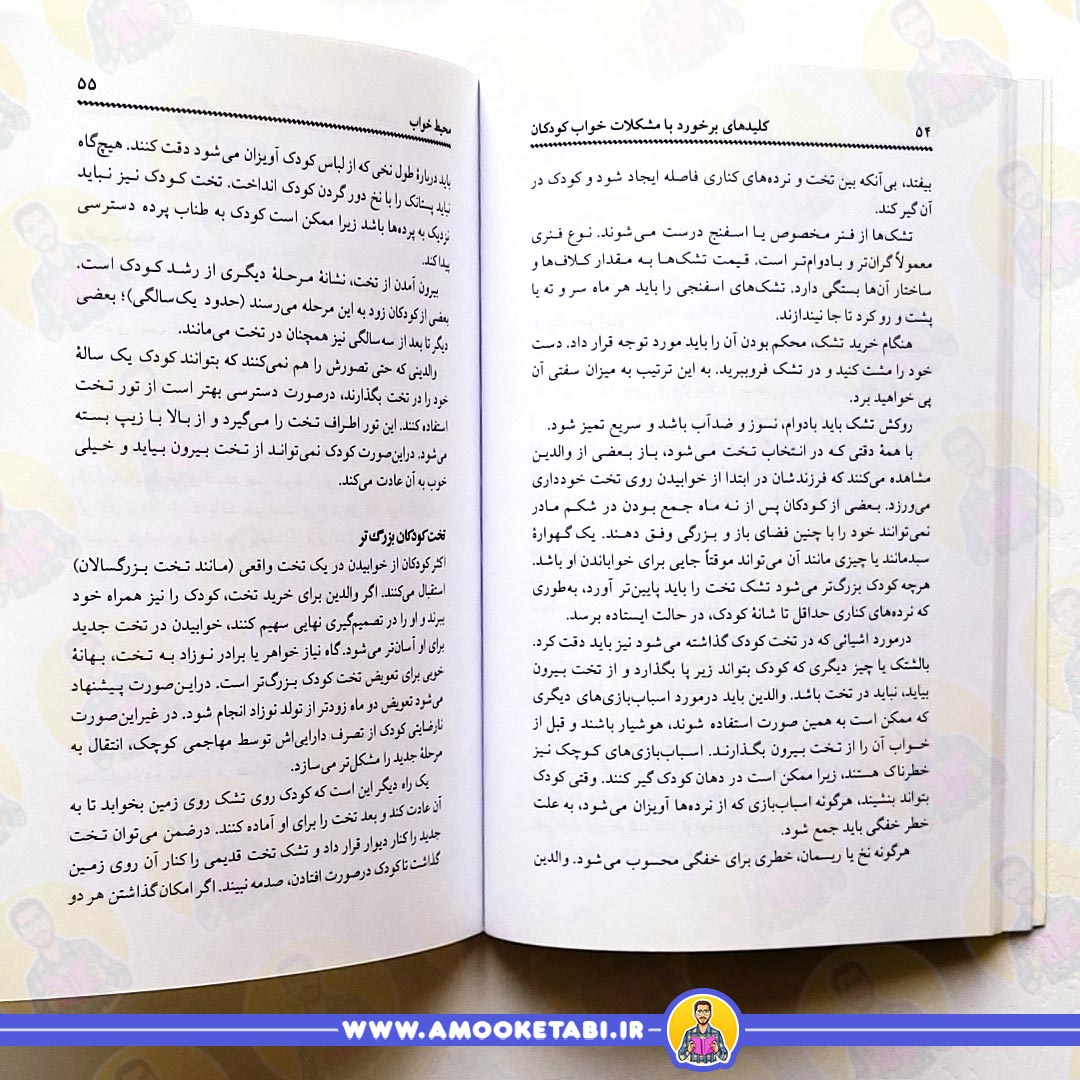 ۵۴
کلیدهای برخورد با مشکلات خواب کودکان
بیفتد، بی‌آنکه بین تخت و نرده‌های کناری فاصله ایجاد شود و کودک در
آن گیر کند.
تشک‌ها از فنر مخصوص یا اسفنج درست می‌شوند. نوع فنری
معمولاً گران‌تر و بادوام‌تر است. قیمت تشک‌ها به مقدار کلاف‌ها و
ساختار آن‌ها بستگی دارد. تشک‌های اسفنجی را باید هر ماه سر و ته یا
پشت و رو کرد تا جا نیندازند.
هنگام خرید تشک، محکم بودن آن را باید مورد توجه قرار داد. دست
خود را مشت کنید و در تشک فروببرید. به این ترتیب به میزان سفتی آن
پی خواهید برد.
روکش تشک باید بادوام، نسوز و ضدآب باشد و سریع تمیز شود.
با همهٔ دقتی که در انتخاب تخت می‌شود، باز بعضی از والدین
مشاهده می‌کنند که فرزندشان در ابتدا از خوابیدن روی تخت خودداری
می‌ورزد. بعضی از کودکان پس از نه ماه جمع بودن در شکم مادر
نمی‌توانند خود را با چنین فضای باز و بزرگی وفق دهند. یک گهوارهٔ
سبدمانند یا چیزی مانند آن می‌تواند موقتاً جایی برای خواباندن او باشد.
هرچه کودک بزرگ‌تر می‌شود تشک تخت را باید پایین‌تر آورد، به‌طوری
که نرده‌های کناری حداقل تا شانهٔ کودک، در حالت ایستاده برسد.
درمورد اشیائی که در تخت کودک گذاشته می‌شود نیز باید دقت کرد.
بالشتک یا چیز دیگری که کودک بتواند زیر پا بگذارد و از تخت بیرون
بیاید، نباید در تخت باشد. والدین باید درمورد اسباب‌بازی‌های دیگری
که ممکن است به همین صورت استفاده شوند، هوشیار باشند و قبل از
خواب آن را از تخت بیرون بگذارند. اسباب‌بازی‌های کوچک نیز
خطرناک هستند، زیرا ممکن است در دهان کودک گیر کنند. وقتی کودک
بتواند بنشیند، هرگونه اسباب‌بازی که از نرده‌ها آویزان می‌شود، به علت
خطر خفگی باید جمع شود.
هرگونه نخ یا ریسمان، خطری برای خفگی محسوب می‌شود. والدین
محیط خواب
۵۵
باید دربارهٔ طول نخی که از لباس کودک آویزان می‌شود دقت کنند. هیچ‌گاه
نباید پستانک را با نخ دور گردن کودک انداخت. تخت کودک نیز نباید
نزدیک به پرده‌ها باشد زیرا ممکن است کودک به طناب پرده دسترسی
پیدا کند.
بیرون آمدن از تخت، نشانهٔ مرحلهٔ دیگری از رشد کودک است.
بعضی از کودکان زود به این مرحله می‌رسند (حدود یک‌سالگی)؛ بعضی
دیگر تا بعد از سه‌سالگی نیز همچنان در تخت می‌مانند.
والدینی که حتی تصورش را هم نمی‌کنند که بتوانند کودک یک سالهٔ
خود را در تخت بگذارند، درصورت دسترسی بهتر است از تور تخت
استفاده کنند. این تور اطراف تخت را می‌گیرد و از بالا با زیپ بسته
می‌شود. دراین‌صورت کودک نمی‌تواند از تخت بیرون بیاید و خیلی
خوب به آن عادت می‌کند.
تخت کودکان بزرگ‌تر
اکثر کودکان از خوابیدن در یک تخت واقعی (مانند تخت بزرگسالان)
استقبال می‌کنند. اگر والدین برای خرید تخت، کودک را نیز همراه خود
ببرند و او را در تصمیم‌گیری نهایی سهیم کنند، خوابیدن در تخت جدید
برای او آسان‌تر می‌شود. گاه نیاز خواهر یا برادر نوزاد به تخت، بهانهٔ
خوبی برای تعویض تخت کودک بزرگ‌تر است. دراین‌صورت پیشنهاد
می‌شود تعویض دو ماه زودتر از تولد نوزاد انجام شود. در غیراین‌صورت
نارضایتی کودک از تصرف دارایی‌اش توسط مهاجمی کوچک، انتقال به
مرحلهٔ جدید را مشکل‌تر می‌سازد.
یک راه دیگر این است که کودک روی تشک روی زمین بخوابد تا به
آن عادت کند و بعد تخت را برای او آماده کنند. درضمن می‌توان تخت
جدید را کنار دیوار قرار داد و تشک تخت قدیمی را کنار آن روی زمین
گذاشت تا کودک درصورت افتادن، صدمه نبیند. اگر امکان گذاشتن هر دو
WWW.AMOOKETABI.IR